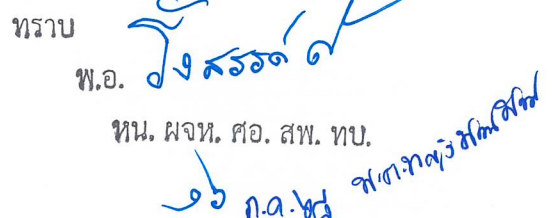 ทราบ
พ.อ. รังสรรค์
หน. ผจห. ศอ. สพ. ทบ.
๑๖ ก.ค. ๖๘